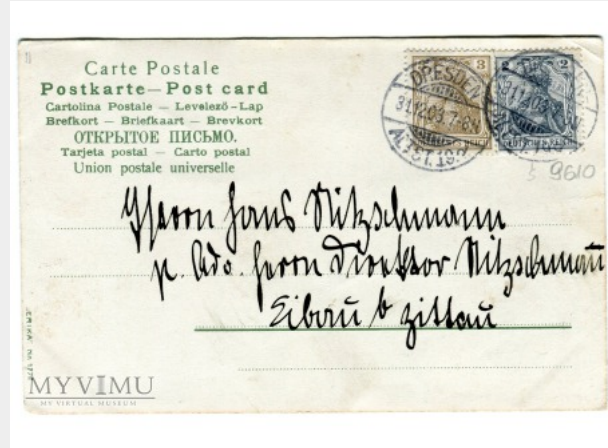 Carte Postale
Postkarte — Post card
Cartolina Postale — Levelező-Lap
Brefkort — Briefkaart — Brevkort
ОТКРЫТОЕ ПИСЬМО.
Tarjeta postal — Carto postal
Union postale universelle
3
2
DRESDEN
31.12.03.7-8N
ALTST.19
DEUTSCHES REICH
9610
Herrn Hans Nitzschmann
p. Adr. Herrn Direktor Nitzschmann
Eibau b Zittau
"ERIKA"
MYVIMU
MY VIRTUAL MUSEUM